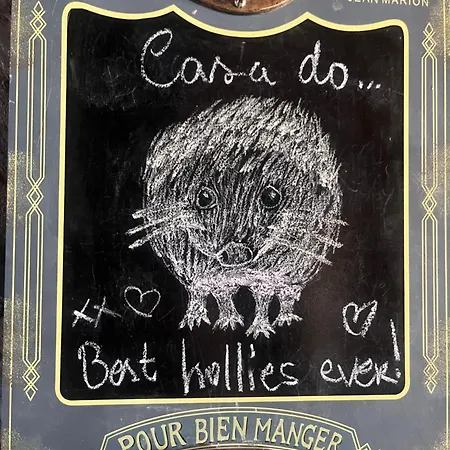 JEAN MARION
Casa do...
xx
Best hollies ever!
POUR BIEN MANGER